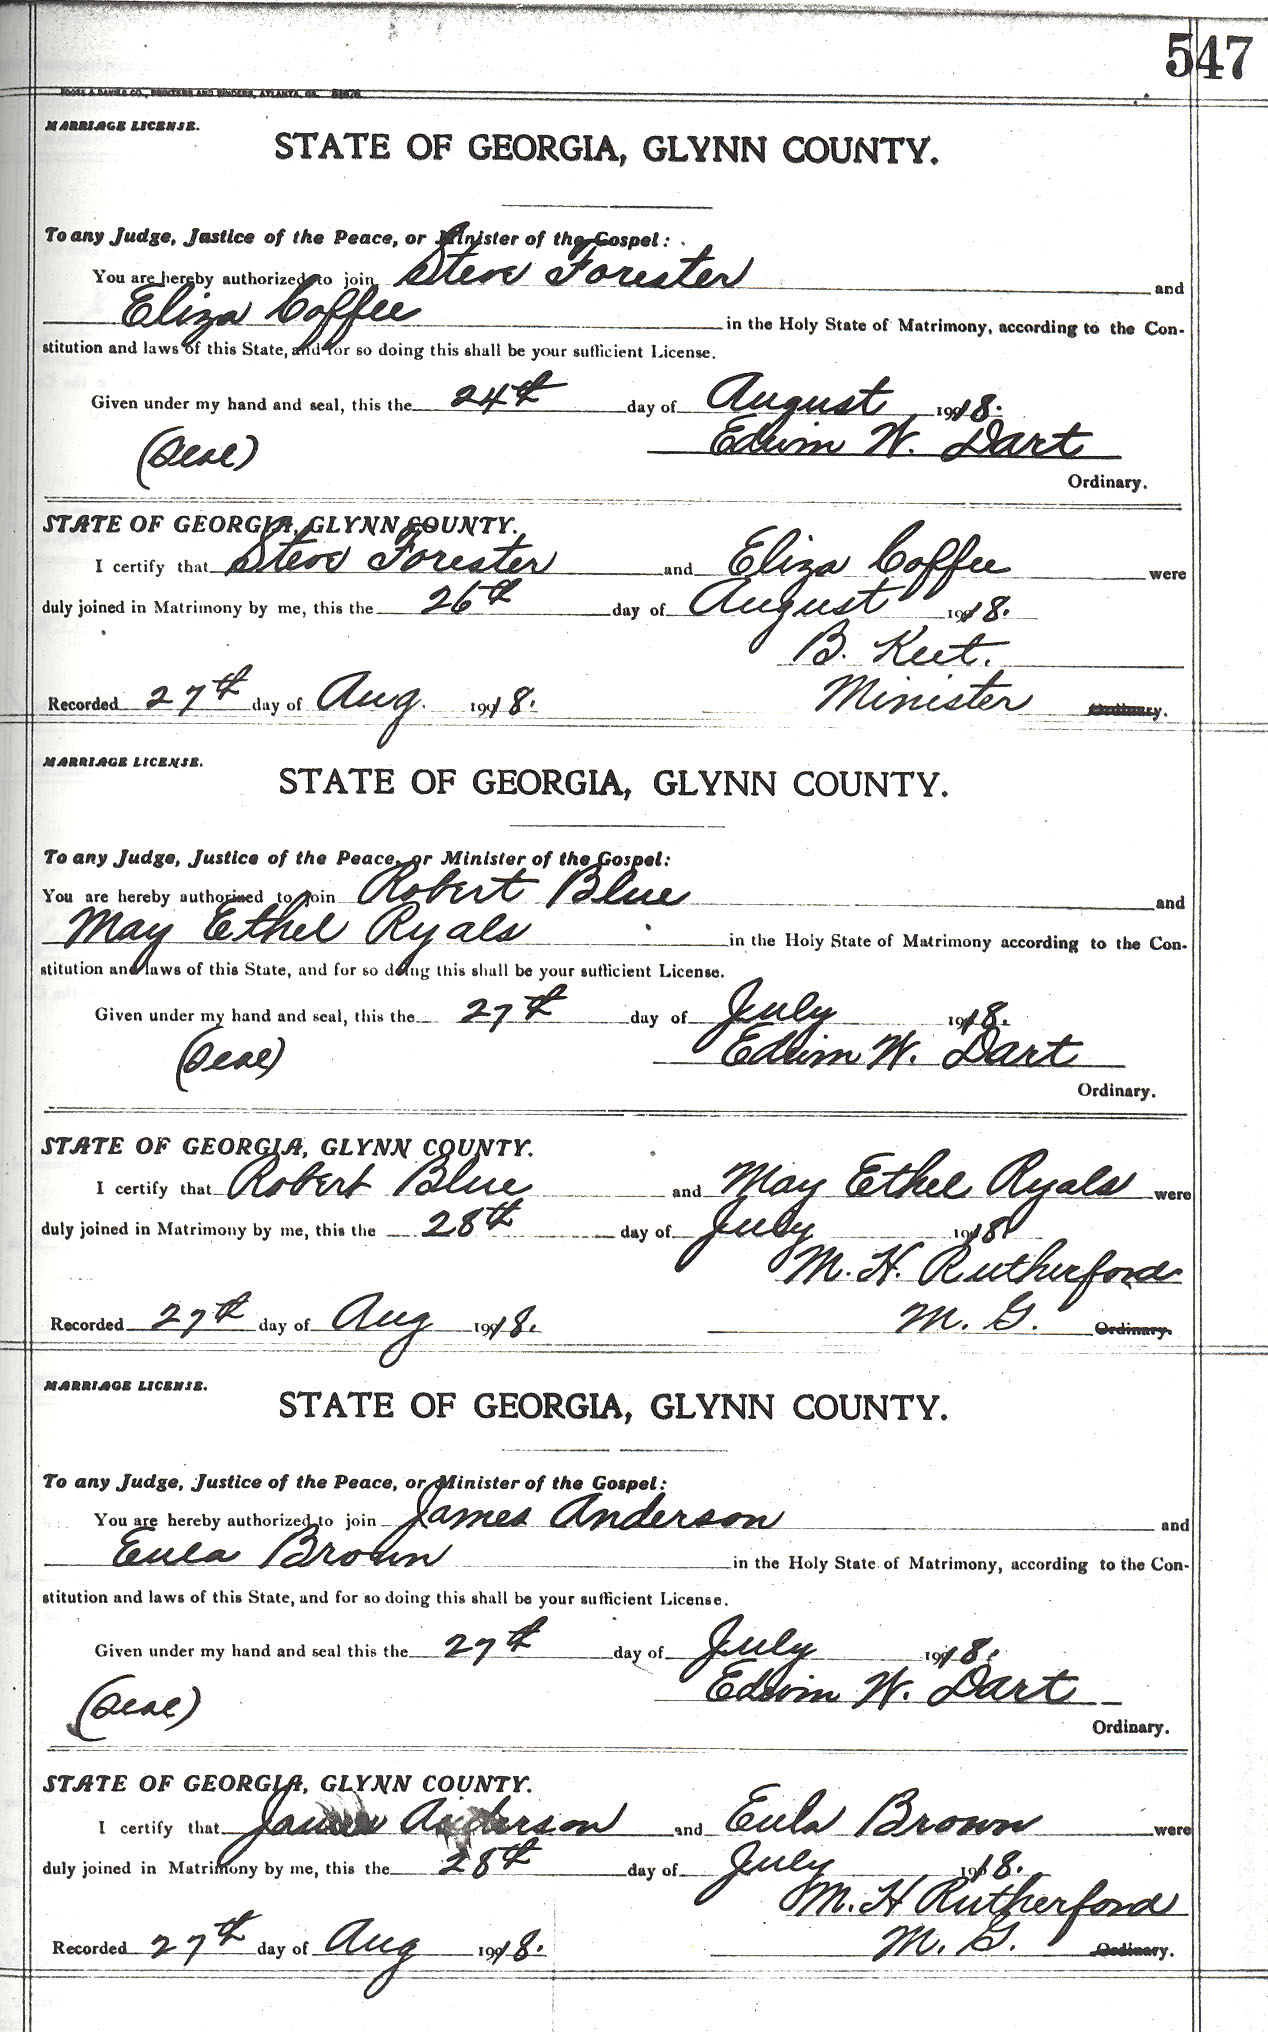 547
FOOTE & DAVIES CO., PRINTERS AND BINDERS, ATLANTA, GA.
MARRIAGE LICENSE.
STATE OF GEORGIA, GLYNN COUNTY.
To any Judge, Justice of the Peace, or Minister of the Gospel:
You are hereby authorized to join Steve Forester and
Eliza Coffee in the Holy State of Matrimony, according to the Con-
stitution and laws of this State, and for so doing this shall be your sufficient License.
Given under my hand and seal, this the 24th day of August 1918.
(Seal) Edwin W. Dart
Ordinary.
STATE OF GEORGIA, GLYNN COUNTY.
I certify that Steve Forester and Eliza Coffee were
duly joined in Matrimony by me, this the 26th day of August 1918.
B. Keet.
Recorded 27th day of Aug. 1918. Minister Ordinary.
MARRIAGE LICENSE.
STATE OF GEORGIA, GLYNN COUNTY.
To any Judge, Justice of the Peace, or Minister of the Gospel:
You are hereby authorized to join Robert Blue and
May Ethel Ryals in the Holy State of Matrimony according to the Con-
stitution and laws of this State, and for so doing this shall be your sufficient License.
Given under my hand and seal, this the 27th day of July 1918.
(Seal) Edwin W. Dart
Ordinary.
STATE OF GEORGIA, GLYNN COUNTY.
I certify that Robert Blue and May Ethel Ryals were
duly joined in Matrimony by me, this the 28th day of July 1918
M. H. Rutherford
Recorded 27th day of Aug 1918. M. G. Ordinary.
MARRIAGE LICENSE.
STATE OF GEORGIA, GLYNN COUNTY.
To any Judge, Justice of the Peace, or Minister of the Gospel:
You are hereby authorized to join James Anderson and
Eula Brown in the Holy State of Matrimony, according to the Con-
stitution and laws of this State, and for so doing this shall be your sufficient License.
Given under my hand and seal this the 27th day of July 1918.
(Seal) Edwin W. Dart
Ordinary.
STATE OF GEORGIA, GLYNN COUNTY.
I certify that James Anderson and Eula Brown were
duly joined in Matrimony by me, this the 28th day of July 1918.
M. H Rutherford
Recorded 27th day of Aug 1918. M. G. Ordinary.